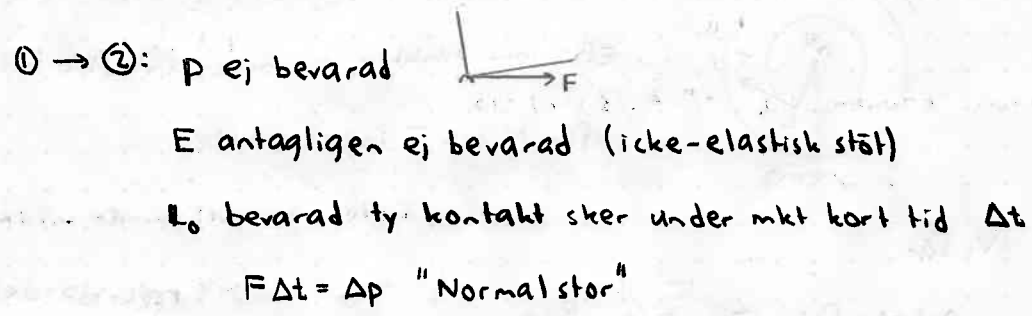 ① → ②: p ej bevarad
F
E antagligen ej bevarad (icke-elastisk stöt)
L₀ bevarad ty kontakt sker under mkt kort tid Δt
FΔt = Δp "Normalstor"